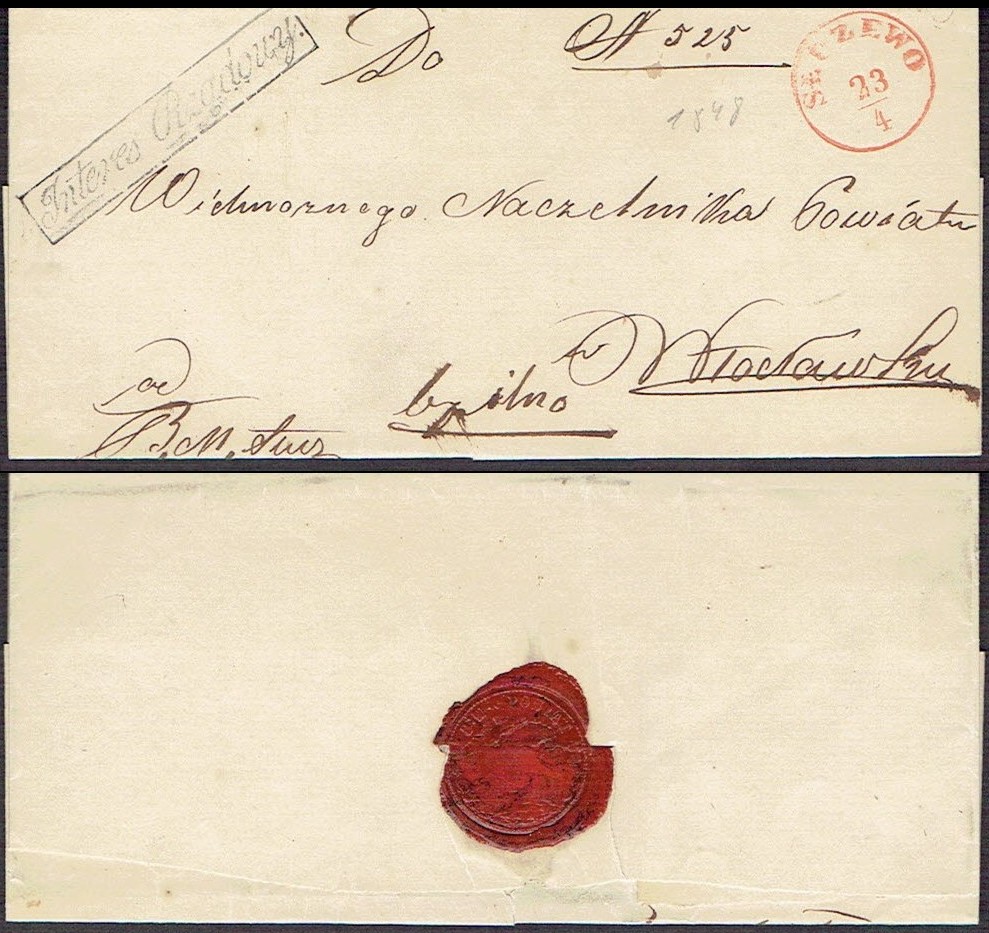 Interes Rządowy.
Do
N 525
SŁUZEWO
23
4
1848
Wielmoznego Naczelnika Powiatu
w Włocławku
od
B. M.
bzilno